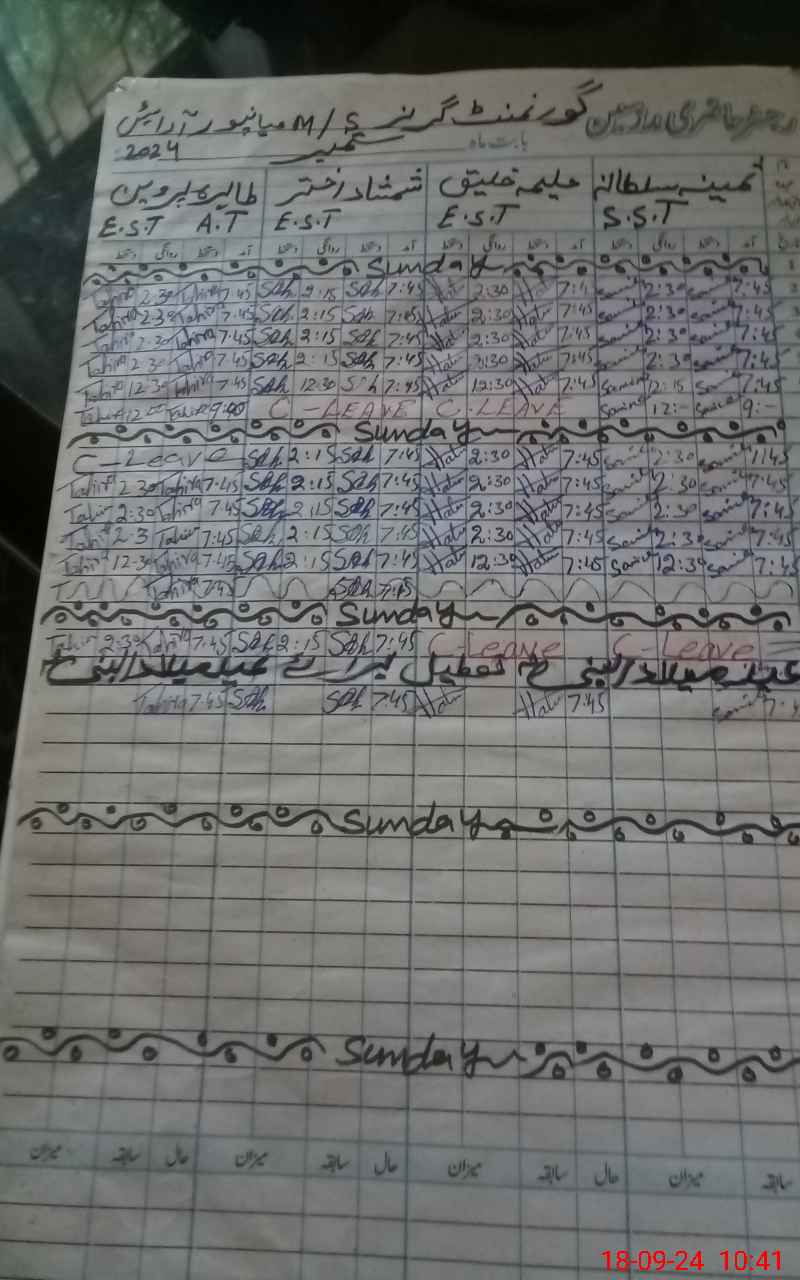 رجسٹر حاضری مدرسین گورنمنٹ گرلز M/S میانپور آرائیں
بابت ماہ ستمبر 2024
ثمینہ سلطانہ حلیمہ خلیق شمشاد اختر طاہرہ پروین
S.S.T E.S.T E.S.T E.S.T A.T
آمد دستخط روانگی دستخط آمد دستخط روانگی دستخط آمد دستخط روانگی دستخط آمد دستخط روانگی دستخط
Sunday
Tahira 2:30 Tahira 7:45 Sah 2:15 Sah 7:45 2:30 7:4 2:30 7:45
Tahira 2:30 Tahira 7:45 Sah 2:15 Sah 7:45 2:30 7:45 2:30 7:45
Tahira 2:30 Tahira 7:45 Sah 2:15 Sah 7:45 2:30 7:45 2:30 7:45
Tahira 2:30 Tahira 7:45 Sah 2:15 Sah 7:45 2:30 7:45 2:30 7:45
Tahira 12:30 Tahira 7:45 Sah 12:30 Sah 7:45 12:30 7:45 12:15 7:45
Tahira 12:00 Tahira 9:00 C-LEAVE C-LEAVE 12:- 9:-
Sunday
C-Leave Sah 2:15 Sah 7:45 2:30 7:45 2:30 7:45
Tahira 2:30 Tahira 7:45 Sah 2:15 Sah 7:45 2:30 7:45 2:30 7:45
Tahira 2:30 Tahira 7:45 Sah 2:15 Sah 7:45 2:30 7:45 2:30 7:45
Tahira 2:3 Tahira 7:45 Sah 2:15 Sah 7:45 2:30 7:45 2:30 7:45
Tahira 12:30 Tahira 7:45 Sah 2:15 Sah 7:45 12:30 7:45 12:30 7:45
Tahira 7:45 Sah 7:45
Sunday
Tahira 2:30 Tahira 7:45 Sah 2:15 Sah 7:45 C-Leave C-Leave
عید میلاد النبی ﷺ تعطیل برائے عید میلاد النبی ﷺ
Tahira 7:45 Sah Sah 7:45 7:45 7:4
Sunday
Sunday
سابقہ میزان حال سابقہ میزان حال سابقہ میزان حال سابقہ میزان
18-09-24 10:41